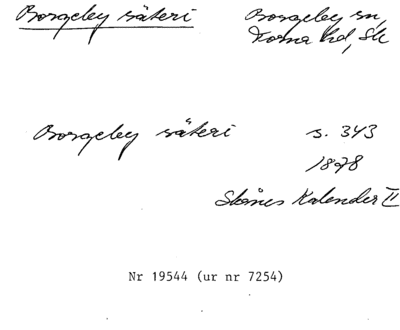 Borgeby säteri
Borgeby sn,
Torna hd, Sk
Borgeby säteri
s. 343
1878
Skånes Kalender II
Nr 19544 (ur nr 7254)